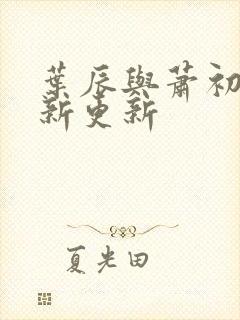 葉辰與蕭初
新更新
夏光田